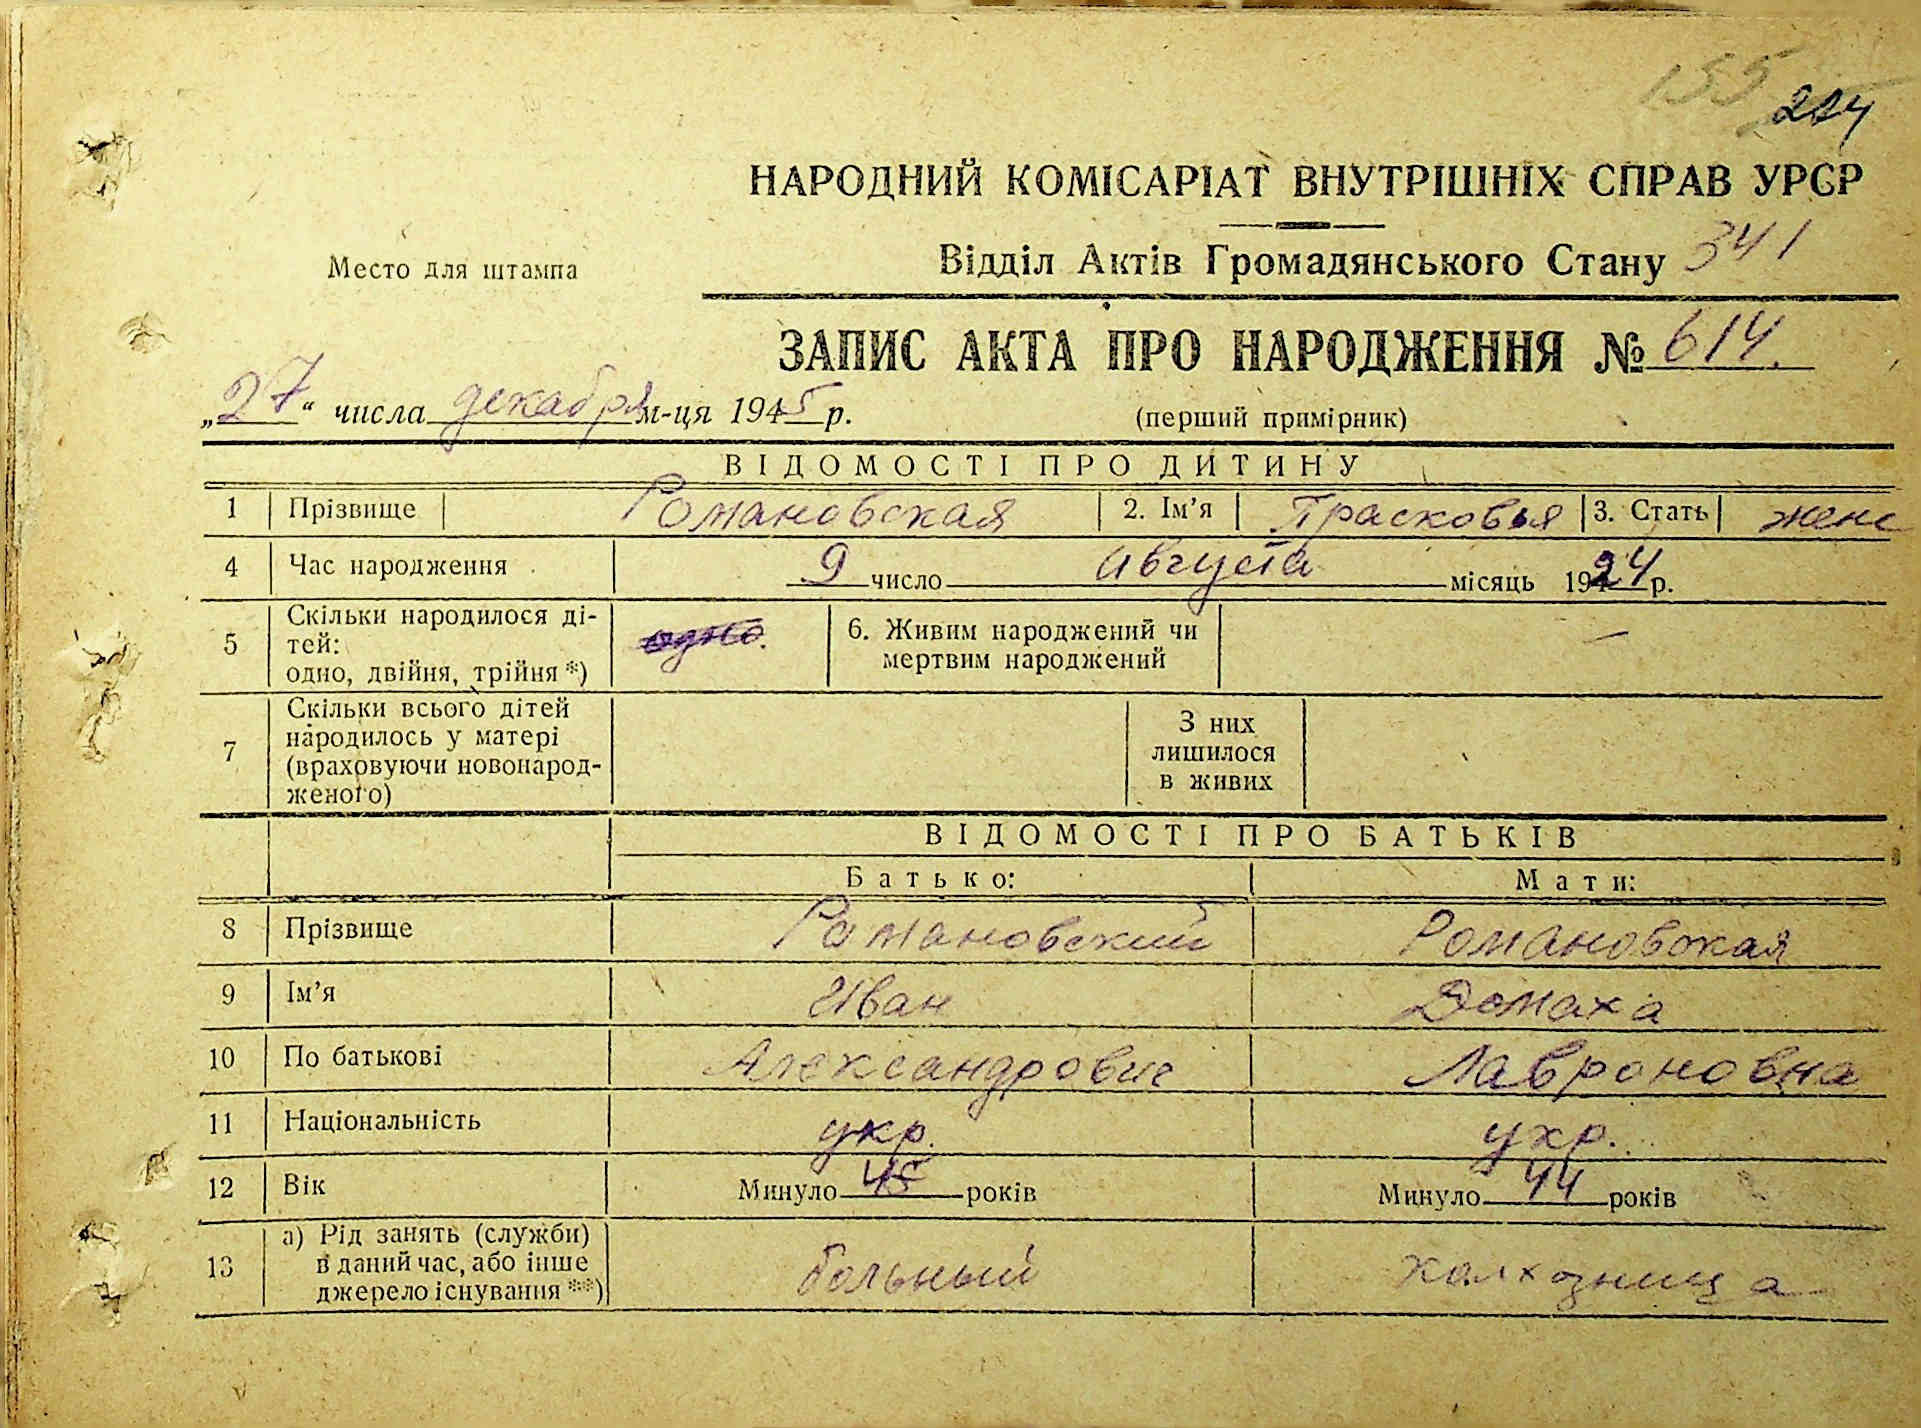 155
НАРОДНИЙ КОМІСАРІАТ ВНУТРІШНІХ СПРАВ УРСР
Место для штампа
Відділ Актів Громадянського Стану 341
ЗАПИС АКТА ПРО НАРОДЖЕННЯ № 614.
„27“ числа декабря м-ця 1945 р.
(перший примірник)
ВІДОМОСТІ ПРО ДИТИНУ
1 Прізвище Романовская 2. Ім’я Прасковья 3. Стать женс
4 Час народження 9 число августа місяць 1924 р.
5 Скільки народилося ді-
тей:
одно, двійня, трійня *) одно.
6. Живим народжений чи
мертвим народжений —
7 Скільки всього дітей
народилось у матері
(враховуючи новонарод-
женого)
З них
лишилося
в живих
ВІДОМОСТІ ПРО БАТЬКІВ
Батько: Мати:
8 Прізвище Романовский Романовская
9 Ім’я Иван Домаха
10 По батькові Александрович Лавроновна
11 Національність укр. укр.
12 Вік Минуло 45 років Минуло 44 років
13 а) Рід занять (служби)
в даний час, або інше
джерело існування **) больный колхозница